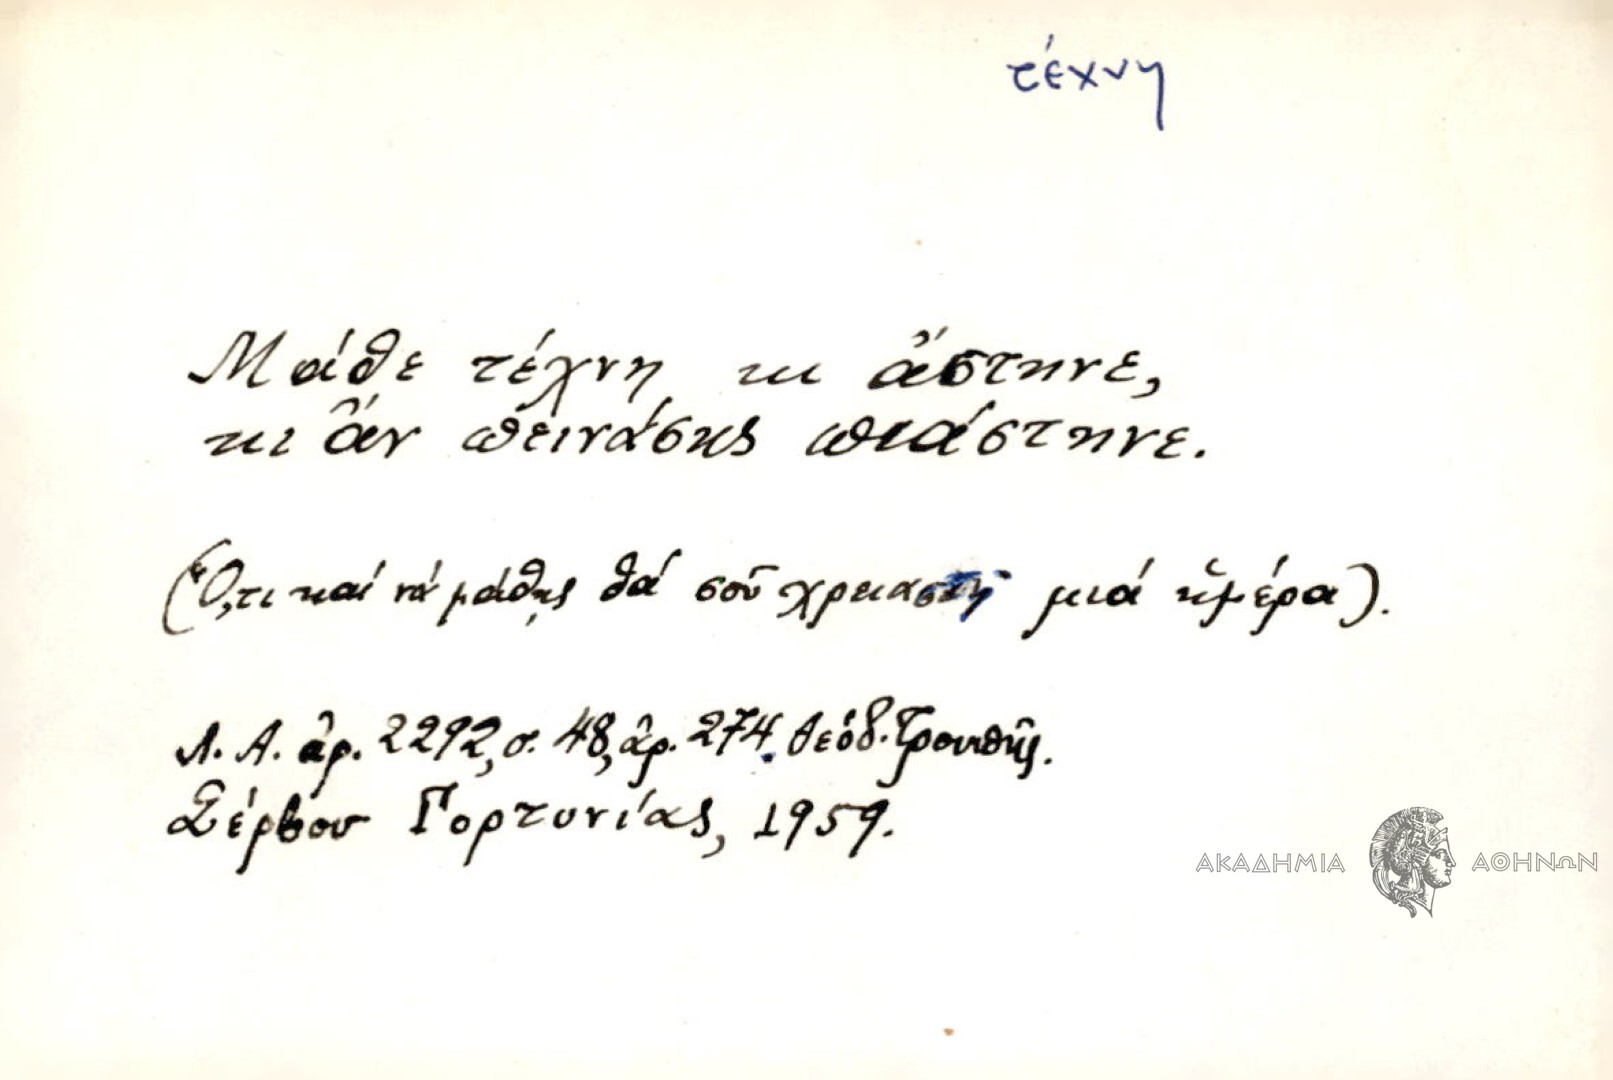 τέχνη
Μάθε τέχνη κι ἄστηνε,
κι ἄν πεινάσῃς πιάστηνε.
(Ὅ,τι καί νά μάθῃς θά σοῦ χρειαστῇ μιά ἡμέρα).
Λ. Α. ἀρ. 2292, σ. 48, ἀρ. 274. Θεόδ.
Σέρβου Γορτυνίας, 1959.
ΑΚΑΔΗΜΙΑ ΑΘΗΝΩΝ